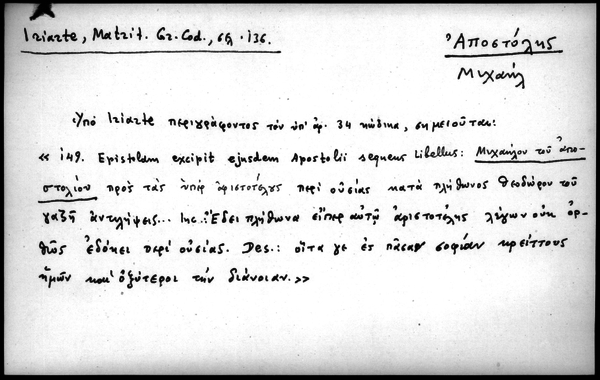 Iriarte, Matrit. Gr. Cod., σελ. 136.
Ἀποστόλης
Μιχαήλ
Ὑπὸ Iriarte περιγράφοντος τὸν ὑπ' ἀρ. 34 κώδικα, σημειοῦται:
« 149. Epistolam excipit ejusdem Apostolii sequens Libellus: Μιχαήλου τοῦ ἀπο-
στολίου πρὸς τὰς ὑπὲρ ἀριστοτέλους περὶ οὐσίας κατὰ πλήθωνος θεοδώρου τοῦ
γαζῆ ἀντιλήψεις... Inc.: Ἔδει πλήθωνα εἴπερ αὐτῷ ἀριστοτέλης λέγων οὐκ ὀρ-
θῶς ἐδόκει περὶ οὐσίας. Des.: οἵτε γε ἐς πᾶσαν σοφίαν κρείττους
ἡμῶν καὶ ὀξύτεροι τὴν διάνοιαν. »